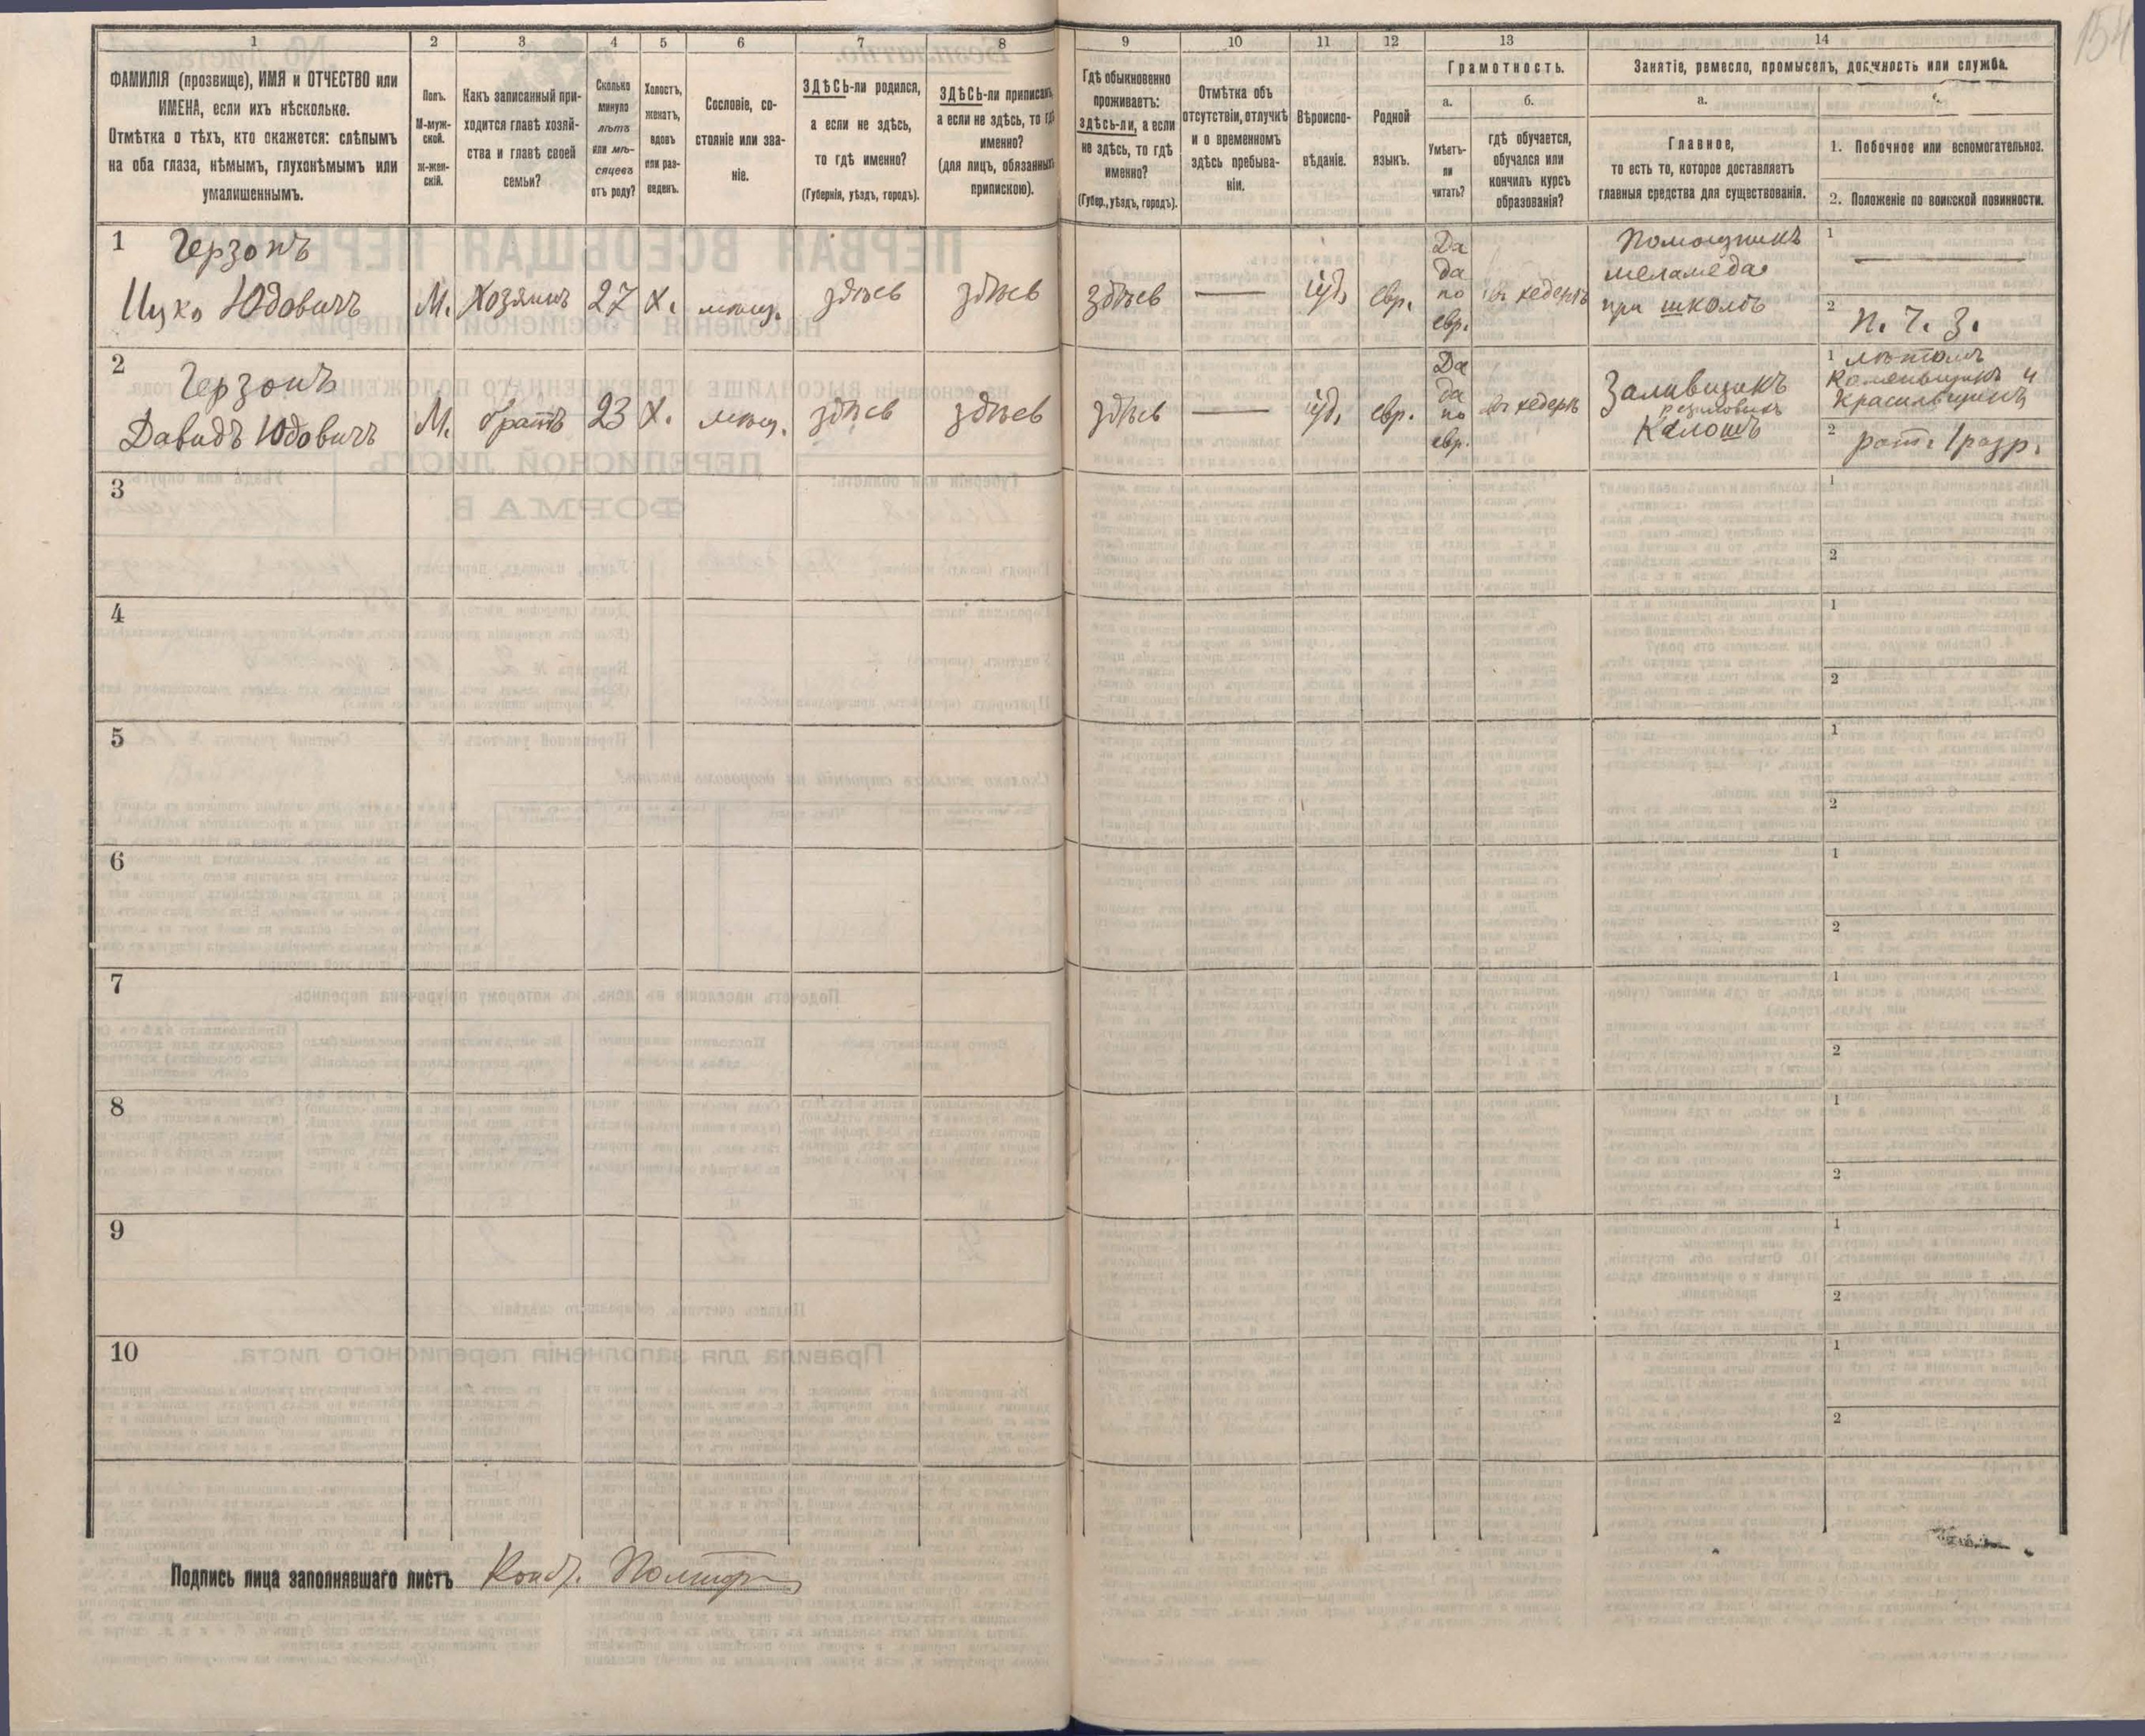 154
1 2 3 4 5 6 7 8 9 10 11 12 13 14
ФАМИЛІЯ (прозвище), ИМЯ и ОТЧЕСТВО или
ИМЕНА, если ихъ нѣсколько.
Отмѣтка о тѣхъ, кто окажется: слѣпымъ
на оба глаза, нѣмымъ, глухонѣмымъ или
умалишеннымъ.
Полъ.
М-муж-
ской.
Ж-жен-
скій.
Какъ записанный при-
ходится главѣ хозяй-
ства и главѣ своей
семьи?
Сколько
минуло
лѣтъ
или мѣ-
сяцевъ
отъ роду?
Холостъ,
женатъ,
вдовъ
или раз-
веденъ.
Сословіе, со-
стояніе или зва-
ніе.
ЗДѢСЬ-ли родился,
а если не здѣсь,
то гдѣ именно?
(Губернія, уѣздъ, городъ).
ЗДѢСЬ-ли приписанъ
а если не здѣсь, то гдѣ
именно?
(для лицъ, обязанныхъ
припискою).
Гдѣ обыкновенно
проживаетъ:
здѣсь-ли, а если
не здѣсь, то гдѣ
именно?
(Губер., уѣздъ, городъ).
Отмѣтка объ
отсутствіи, отлучкѣ
и о временномъ
здѣсь пребыва-
ніи.
Вѣроиспо-
вѣданіе.
Родной
языкъ.
Грамотность.
а.
Умѣетъ-
ли
читать?
б.
гдѣ обучается,
обучался или
кончилъ курсъ
образованія?
Занятіе, ремесло, промыселъ, должность или служба.
а.
Главное,
то есть то, которое доставляетъ
главныя средства для существованія.
1. Побочное или вспомогательное.
2. Положеніе по воинской повинности.
1
Герзонъ
Ицко Юдовичъ
М.
Хозяинъ
27
Х.
мѣщ.
здѣсь
здѣсь
здѣсь
іуд.
евр.
Да
да
по
евр.
въ хедерѣ
Помощникъ
меламеда
при школѣ
1
2
п. ч. з.
2
Герзонъ
Давидъ Юдовичъ
М.
братъ
23
Х.
мѣщ.
здѣсь
здѣсь
здѣсь
іуд.
евр.
Да
да
по
евр.
въ хедерѣ
Заливщикъ
резиновыхъ
Калошъ
1 лѣтомъ
Каменьщикъ и
Красильщикъ
2 рат. 1 разр.
3
1
2
4
1
2
5
1
2
6
1
2
7
1
2
8
1
2
9
1
2
10
1
2
Подпись лица заполнявшаго листъ